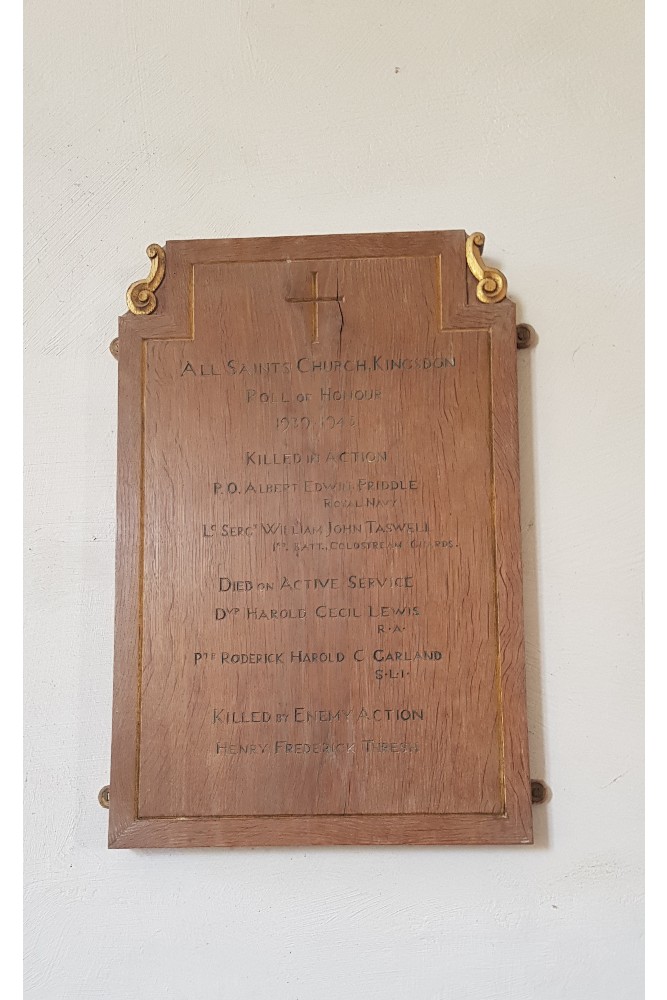 ALL SAINTS CHURCH. KINGSDON
ROLL OF HONOUR
1939-1945
KILLED IN ACTION
P.O. ALBERT EDWIN PRIDDLE
ROYAL NAVY
LC SERGT WILLIAM JOHN TASWELL
1ST BATT. COLDSTREAM GUARDS.
DIED ON ACTIVE SERVICE
DVR HAROLD CECIL LEWIS
R.A.
PTE RODERICK HAROLD C GARLAND
S.L.I.
KILLED BY ENEMY ACTION
HENRY FREDERICK